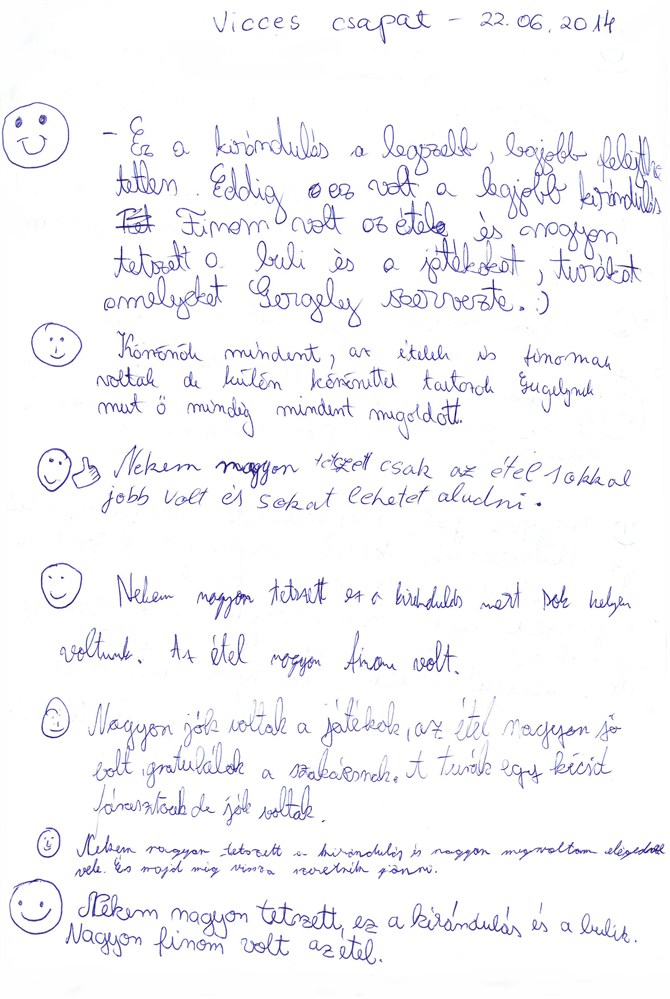 Vicces csapat - 22.06.2014
- Ez a kirándulás a legszebb, legjobb felejthe
tetlen. Eddig ez volt a legjobb kirándulás
Finom volt az étel és nagyon
tetszett a buli és a játékokat, turákat
amelyeket Gergely szervezte. :)
Köszönök mindent, az ételek is finomak
voltak de külön köszönettel tartozok Gergelynek
mert ő mindig mindent megoldott.
Nekem nagyon tetszett csak az étel sokkal
jobb volt és sokat lehetet aludni.
Nekem nagyon tetszett ez a kirándulás mert sok helyen
voltunk. Az étel nagyon finom volt.
Nagyon jók voltak a játékok, az étel nagyon jó
volt, gratulálok a szakácsnak. A turák egy kicsit
fárasztóak de jók voltak.
Nekem nagyon tetszett a kirándulás is nagyon megvoltam elégedve
vele. És majd még vissza szeretnék jönni.
Nekem nagyon tetszett, ez a kirándulás és a bulik.
Nagyon finom volt az étel.